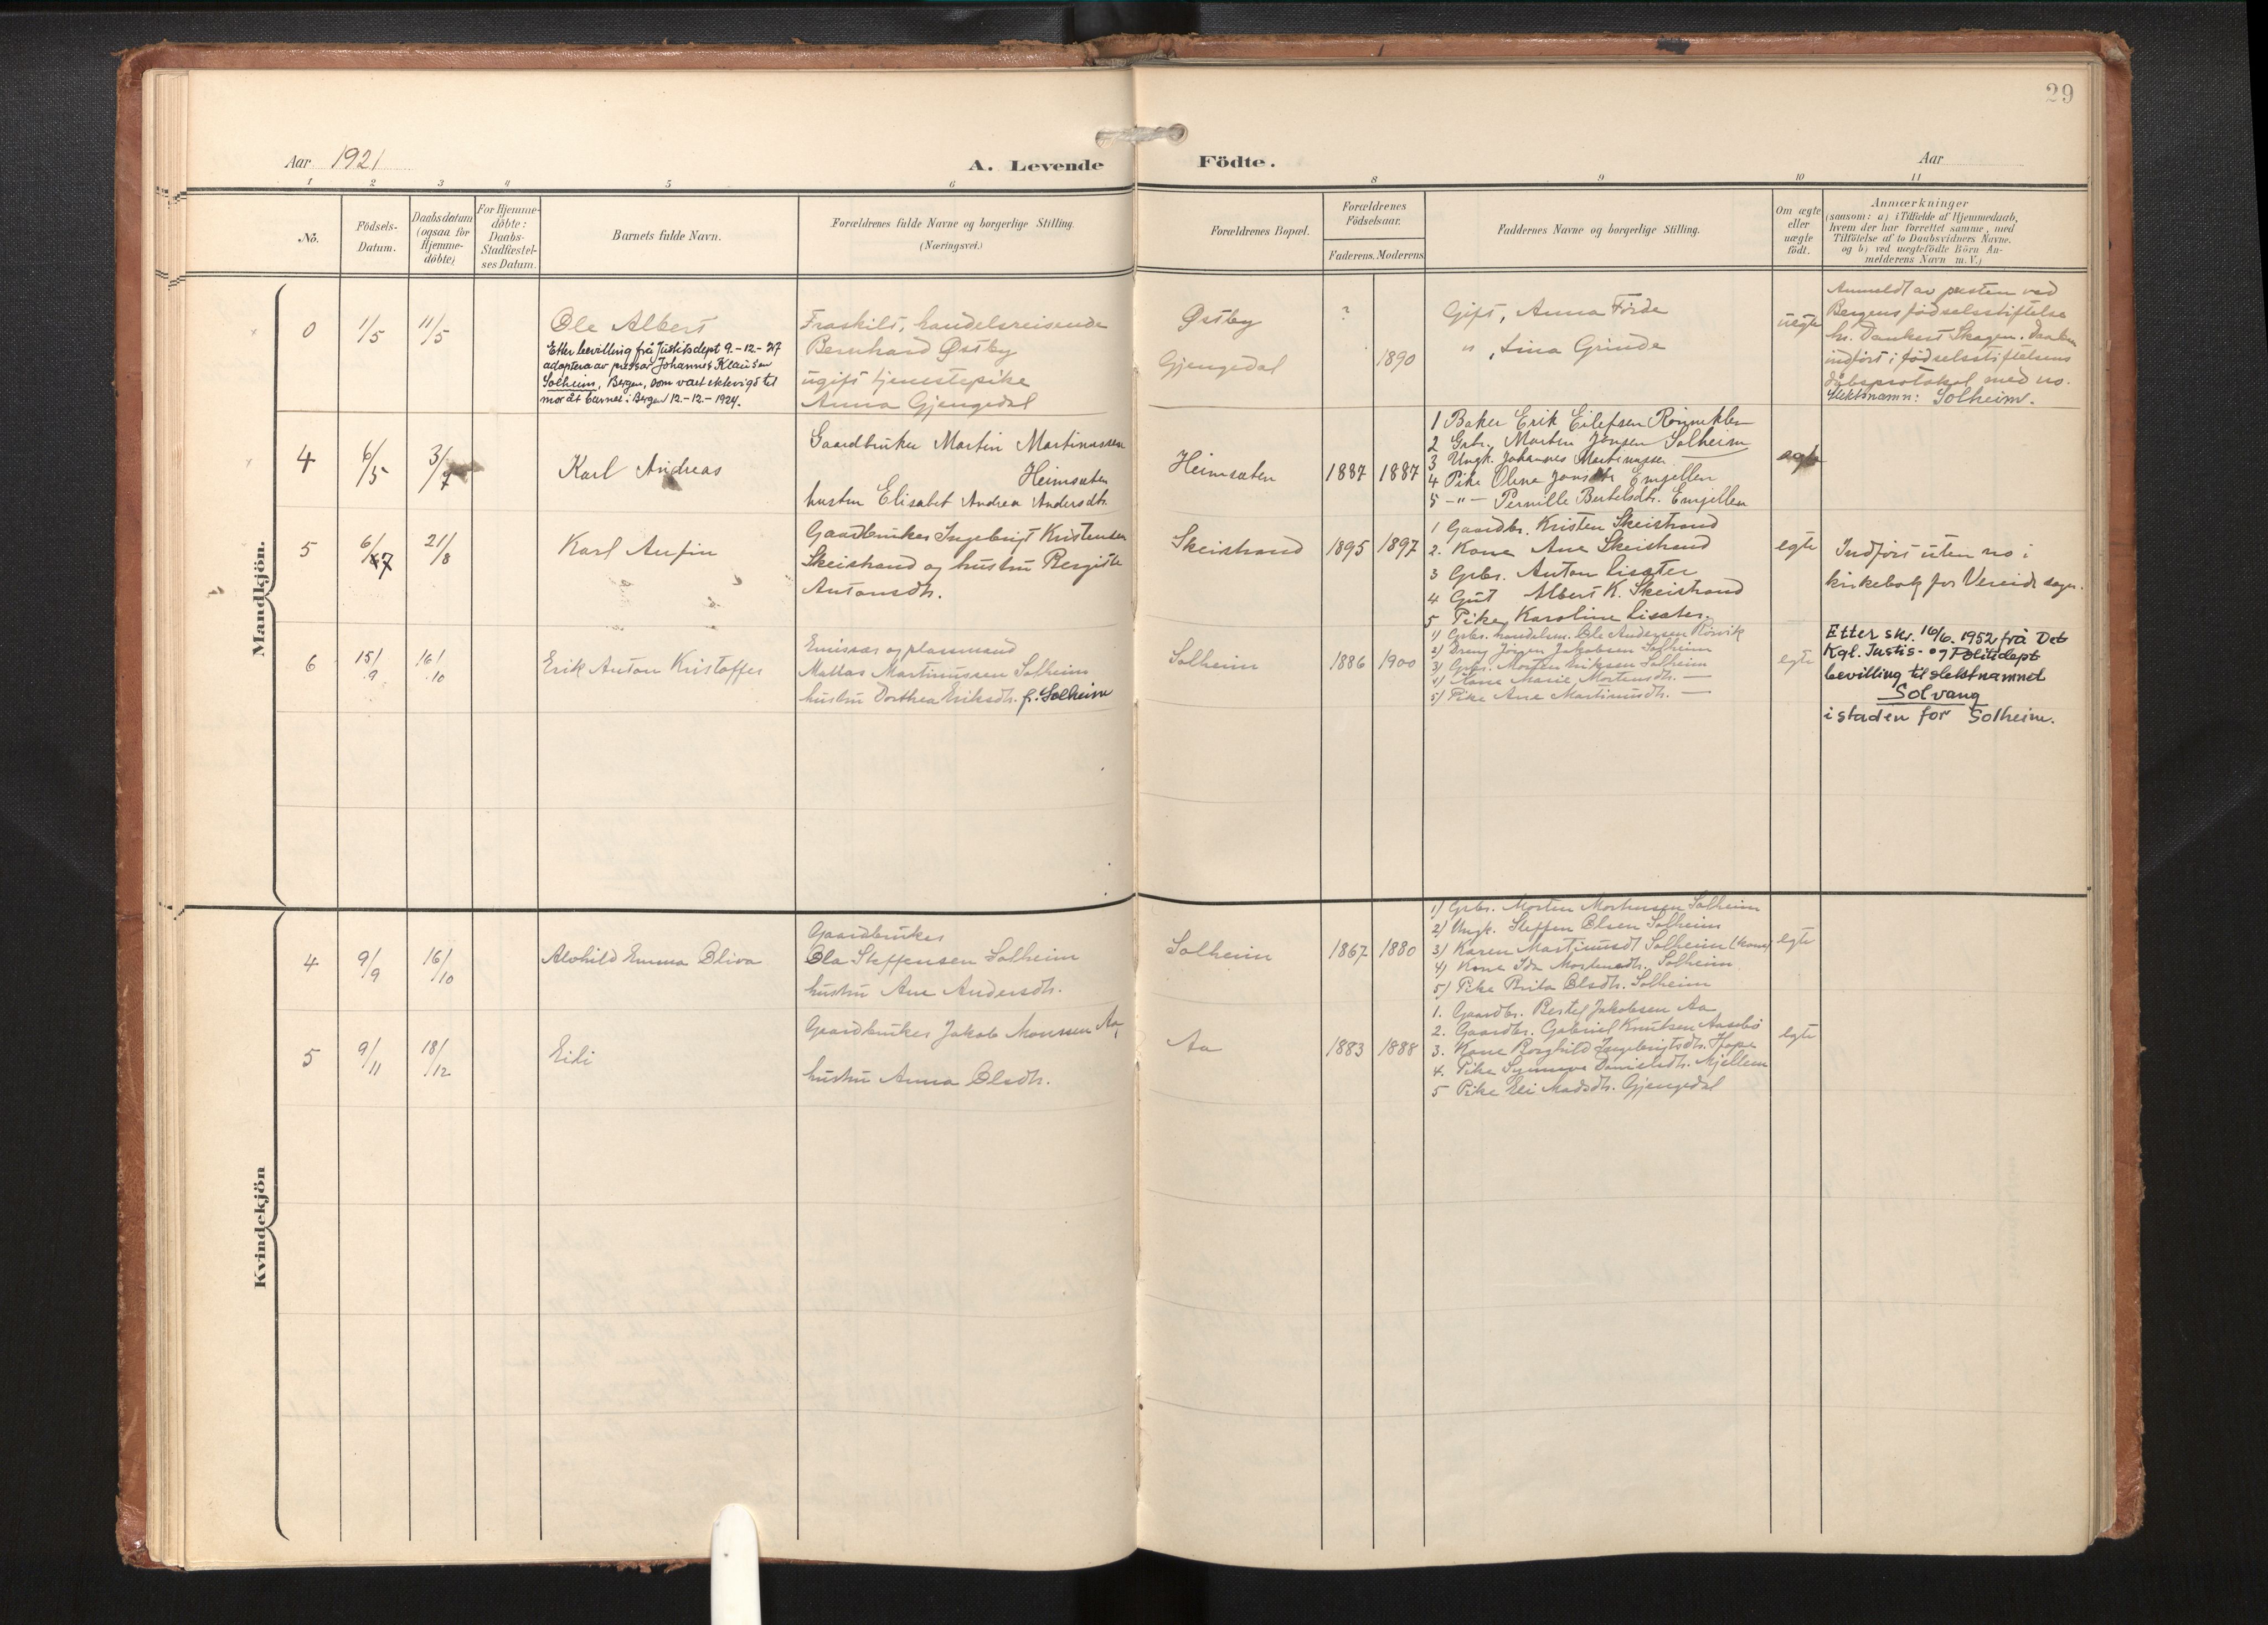 29
Aar 1921
A. Levende Födte.
Aar
1 2 3 4 5 6 8 9 10 11
No.
Födsels-
Datum.
Daabsdatum
(ogsaa for
Hjemme-
döbte)
For Hjemme-
döbte:
Daabs-
Stadfæstel-
ses Datum.
Barnets fulde Navn.
Forældrenes fulde Navne og borgerlige Stilling.
(Næringsvei.)
Forældrenes Bopæl.
Forældrenes
Födselsaar.
Faderens. Moderens.
Faddernes Navne og borgerlige Stilling.
Om ægte
eller
uægte
födt.
Anmærkninger
(saasom: a) i Tilfælde af Hjemmedaab,
hvem der har forrettet samme, med
Tilföielse af to Daabsvidners Navne.
og b) ved uægtefödte Börn An-
melderens Navn m. V.)
Mandkjön.
0
1/5
11/5
Ole Albert
Etter bevilling frå Justitsdept 9.-12.-27
adoptera av Johannes Klausen
Solheim, Bergen, som vart ektevigd til
mor åt barnet i Bergen 12.-12.-1924.
Fraskilt, handelsreisende
Bernhard Østby
ugift tjenestepike
Anna Gjengedal
Østby
Gjengedal
?
1890
Gift, Anna Förde
" , Lina Grinde
uegte
Anmeldt av presten ved
Bergens födselsstiftelse
hr. Dankert Skagen. Daaben
indfört i födselsstiftelsens
dåbsprotokol med no.
Slektsnamn: Solheim.
4
6/5
3/7
Karl Andreas
Gaardbruker Martin Martinussen
Heimsæten
hustru Elisabet Andrea Andersdtr.
Heimsæten
1887
1887
1 Baker Erik Eilefsen
2 Grbr. Martin Jonsen Solheim
3 Ungk. Johannes Martinussen —
4 Pike Oline Emjellen
5 -"- Pernille Bertelsdtr. Emjellen
5
6/7
21/8
Karl Anfin
Gaardbruker Ingebrigt Kristensen
Skeistrand og hustru Bergitte
Antonsdtr.
Skeistrand
1895
1897
1 Gaardbr. Kristen Skeistrand
2. Kone Ane Skeistrand
3 Grbr. Anton Lisæter
4 Gut Albert K. Skeistrand
5 Pike Karoline Lisæter.
egte
Indfört uten no i
kirkebok for Vereide sogn.
6
15/9
16/10
Erik Anton Kristoffer
Emissær og plassmand
Matias Martinussen Solheim
hustru Dorthea Eriksdtr. f. Solheim
Solheim
1886
1900
1) Grbr. handelsm. Ole Andersen Rösvik
2) Dreng Jörgen Jakobsen Solheim
3) Grbr. Morten Eriksen Solheim
4) Kone Marie Mortensdtr. —
5) Pike Ane Martinusdtr. —
egte
Etter skr. 16/6. 1952 frå Det
Kgl. Justis- og Politidept
bevilling til slektsnamnet
Solvang
i staden for Solheim.
Kvindekjön
4
9/9
16/10
Alvhild Emma Oliva
Gaardbruker
Ola Steffensen Solheim
hustru Ane Andersdtr.
Solheim
1867
1880
1) Grbr. Morten Mortensen Solheim
2) Ungk. Steffen Olsen Solheim
3) Karen Martinusdt Solheim (kone)
4) Kone Ida Mortensdtr. Solheim
5) Pike Brita Olsdtr. Solheim
egte
5
9/11
18/12
Eili
Gaardbruker Jakob Monssen Aa,
hustru Anna Olsdtr.
Aa
1883
1888
1. Gaardbr. Bertel Jakobsen Aa
2. Gaardbr. Gabriel Knutsen Aasebö
3. Kone Borghild Ingebrigtsdtr. Hope
4. Pike Synneva Danielsdtr. Mjellem
5 Pike Eli Madsdtr. Gjengedal
egte